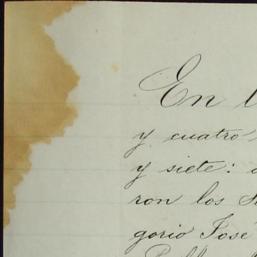 En l
y cuatro
y siete:
ron los
gorio Jose